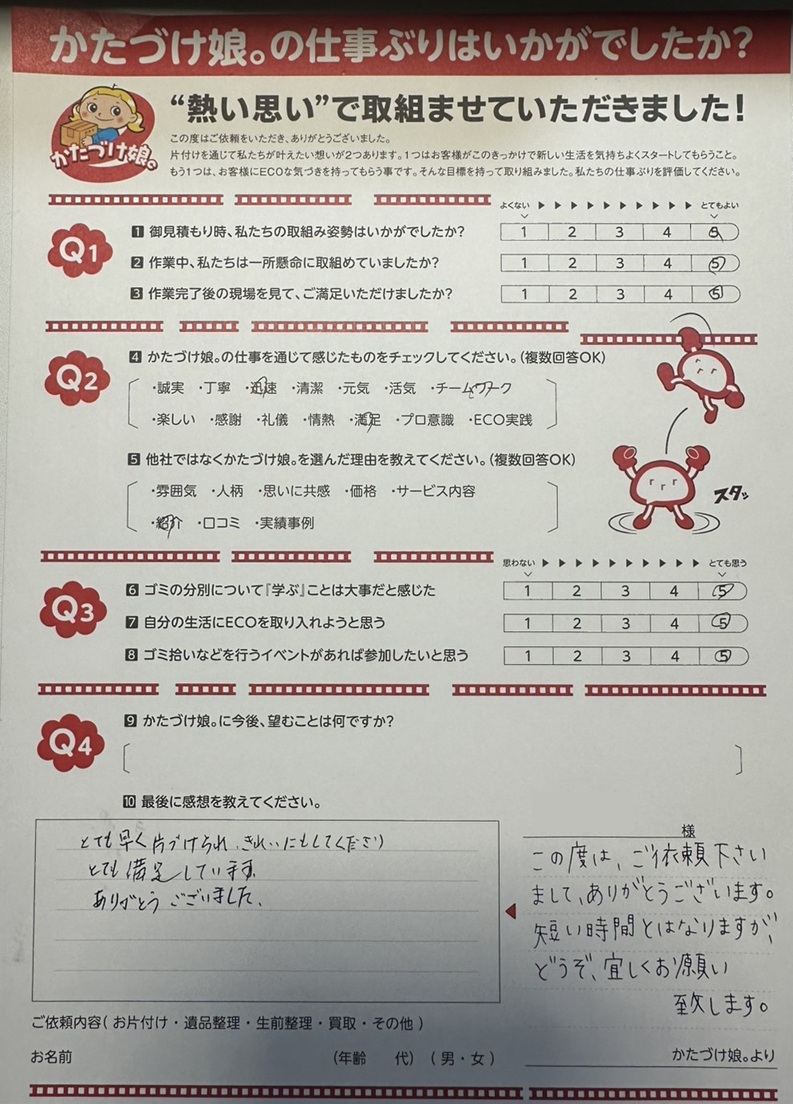 かたづけ娘。の仕事ぶりはいかがでしたか?
かたづけ娘。
“熱い思い”で取組ませていただきました!
この度はご依頼をいただき、ありがとうございました。
片付けを通じて私たちが叶えたい想いが2つあります。1つはお客様がこのきっかけで新しい生活を気持ちよくスタートしてもらうこと。
もう1つは、お客様にECOな気づきを持ってもらう事です。そんな目標を持って取り組みました。私たちの仕事ぶりを評価してください。
よくない ▶ ▶ ▶ ▶ ▶ ▶ ▶ ▶ ▶ ▶ とてもよい
Q1
1 御見積もり時、私たちの取組み姿勢はいかがでしたか? 1 2 3 4 5
2 作業中、私たちは一所懸命に取組めていましたか? 1 2 3 4 5
3 作業完了後の現場を見て、ご満足いただけましたか? 1 2 3 4 5
Q2
4 かたづけ娘。の仕事を通じて感じたものをチェックしてください。(複数回答OK)
・誠実 ・丁寧 ・迅速 ・清潔 ・元気 ・活気 ・チームワーク
・楽しい ・感謝 ・礼儀 ・情熱 ・満足 ・プロ意識 ・ECO実践
5 他社ではなくかたづけ娘。を選んだ理由を教えてください。(複数回答OK)
・雰囲気 ・人柄 ・思いに共感 ・価格 ・サービス内容
・紹介 ・口コミ ・実績事例
スタッ
思わない ▶ ▶ ▶ ▶ ▶ ▶ ▶ ▶ ▶ ▶ とても思う
Q3
6 ゴミの分別について『学ぶ』ことは大事だと感じた 1 2 3 4 5
7 自分の生活にECOを取り入れようと思う 1 2 3 4 5
8 ゴミ拾いなどを行うイベントがあれば参加したいと思う 1 2 3 4 5
Q4
9 かたづけ娘。に今後、望むことは何ですか?
10 最後に感想を教えてください。
とても早く片づけられ、きれいにもしてくださり
とても満足しています。
ありがとうございました。
様
この度は、ご依頼下さい
まして、ありがとうございます。
短い時間とはなりますが、
どうぞ、宜しくお願い
致します。
かたづけ娘。より
ご依頼内容( お片付け・遺品整理・生前整理・買取・その他 )
お名前 (年齢 代) ( 男・女 )